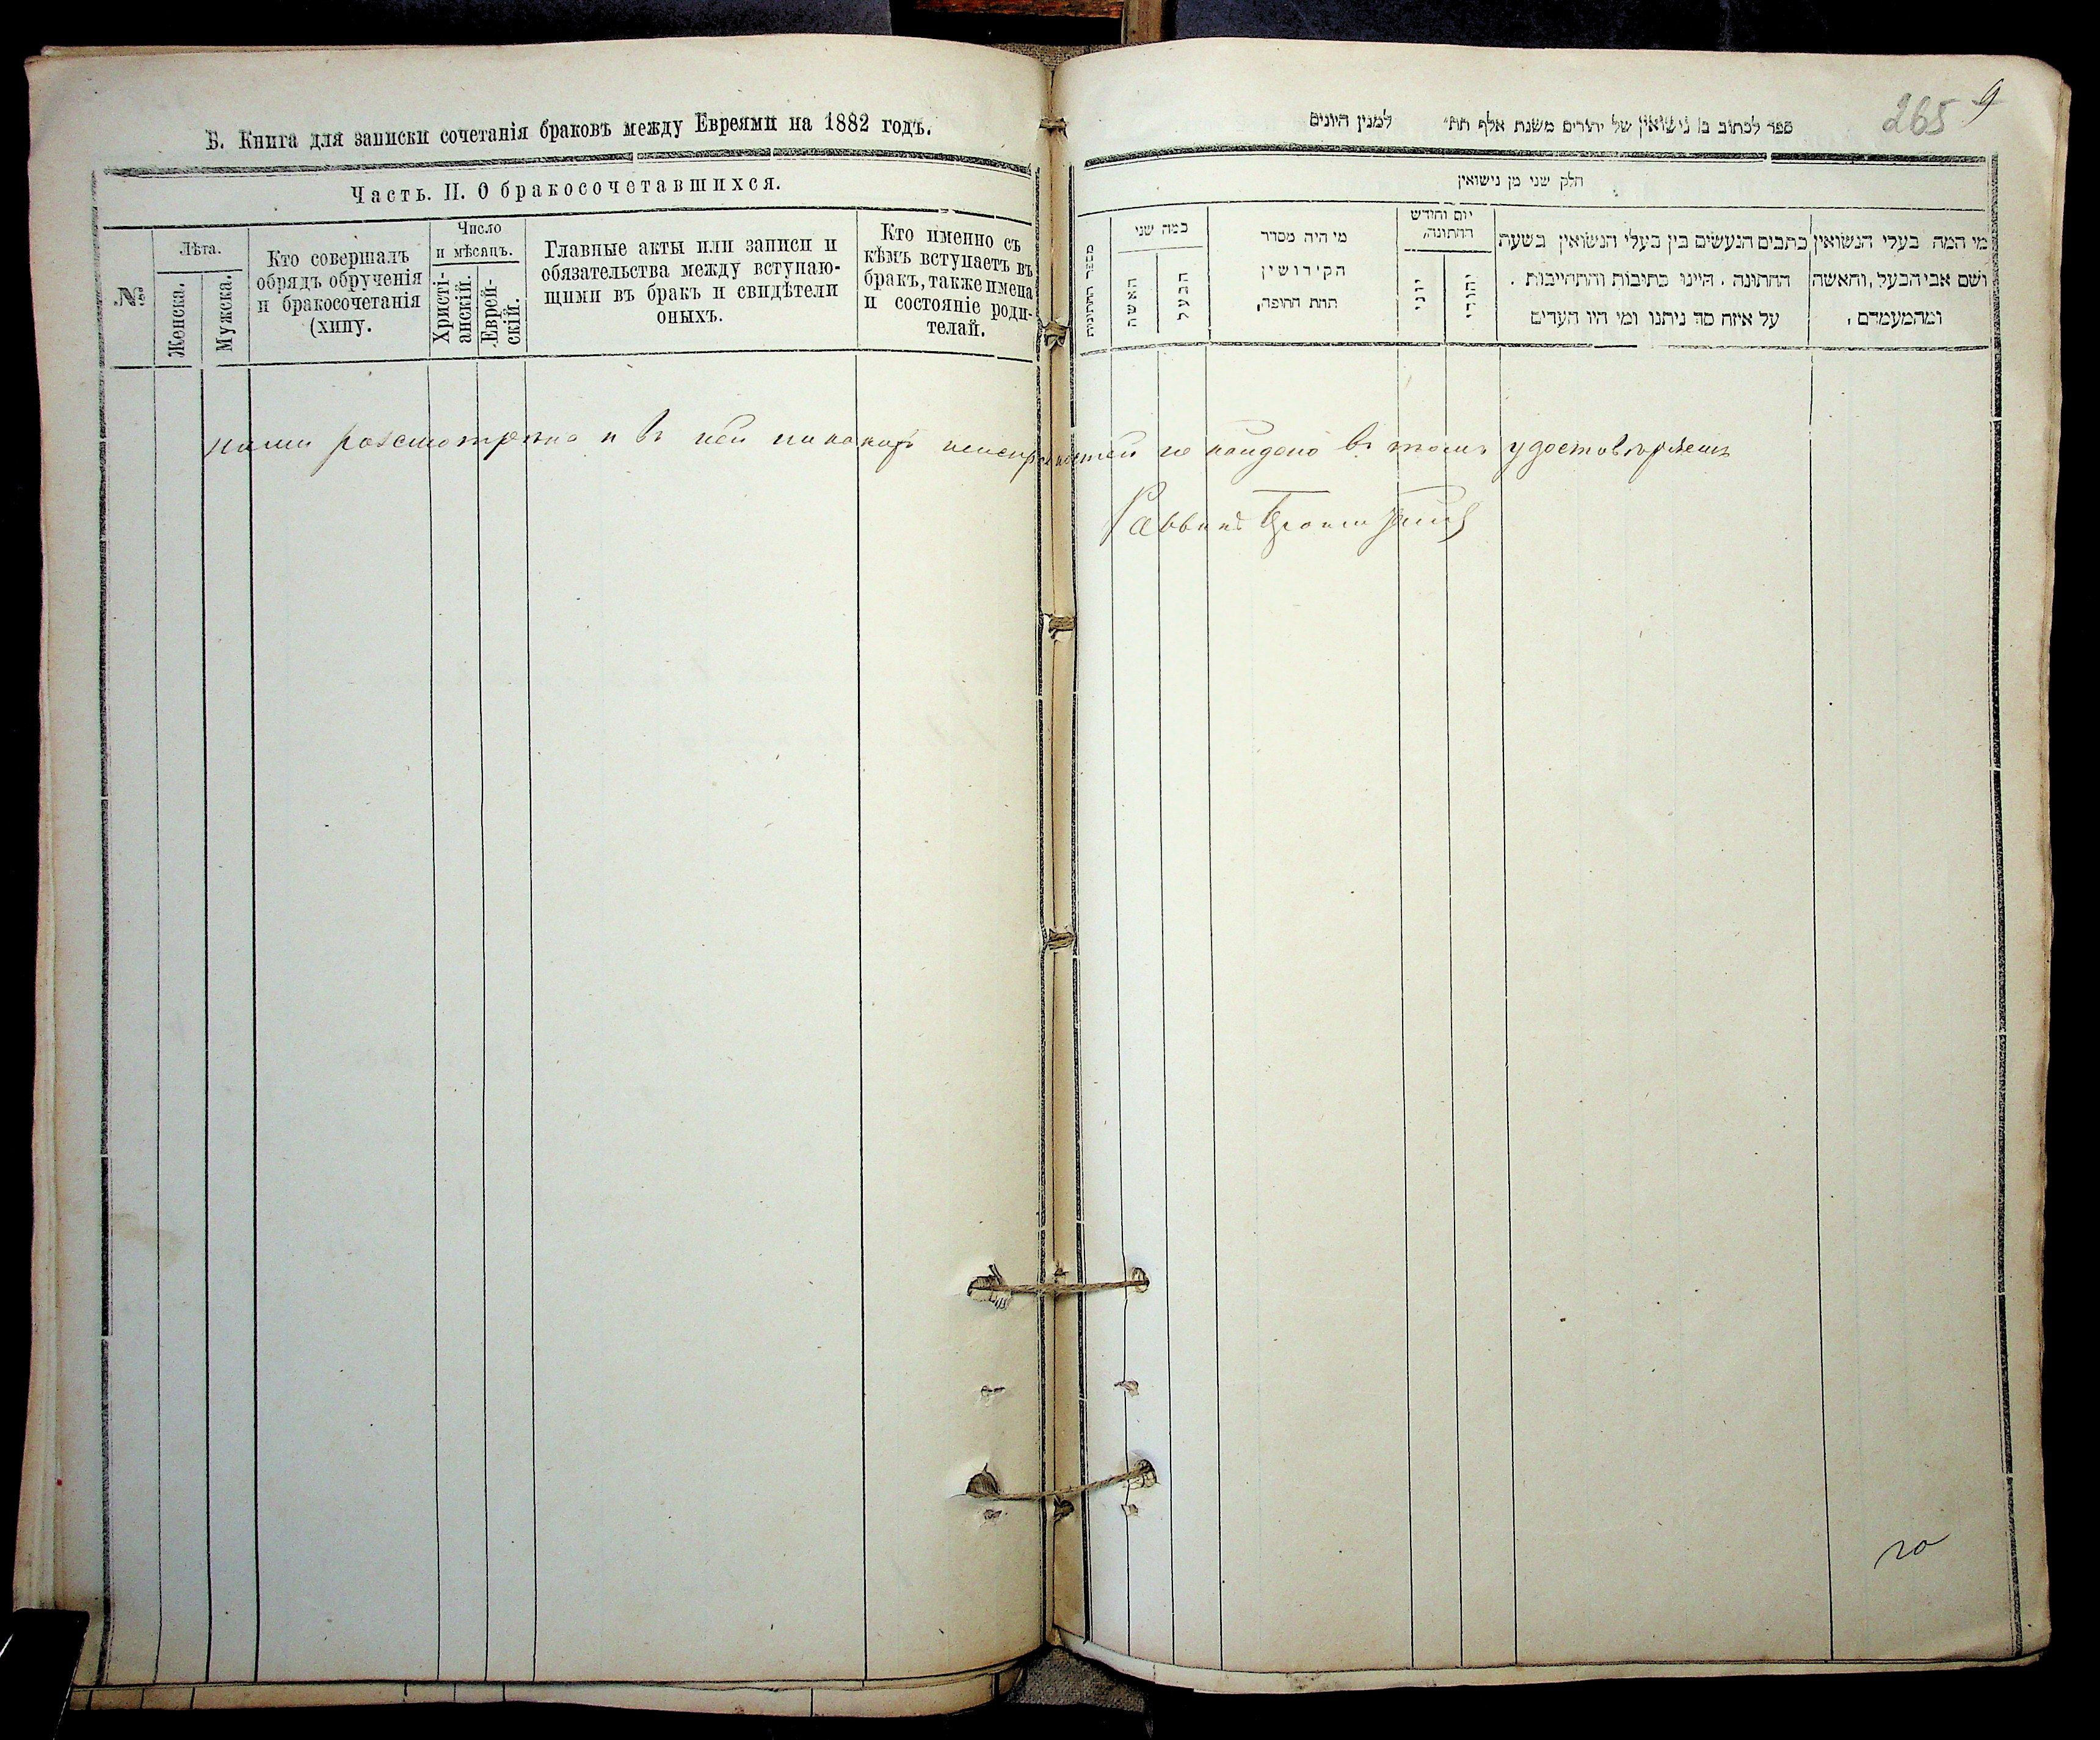 Б. Книга для записки сочетанія браковъ между Евреями на 1882 годъ.
Часть. II. О бракосочетавшихся.
№
Лѣта.
Женска.
Мужска.
Кто совершалъ
обрядъ обрученія
и бракосочетанія
(хипу.
Число
и мѣсяцъ.
Христі-
анскій.
Еврей-
скій.
Главные акты или записи и
обязательства между вступаю-
щими въ бракъ и свидѣтели
оныхъ.
Кто именно съ
кѣмъ вступаетъ въ
бракъ, также имена
и состояніе роди-
телай.
265 9
ספר לכתוב בו נישואין של יהודים משנת אלף תת״ למנין היונים
חלק שני מן נישואין
מספר החתונות
כמה שני
האשה
הבעל
מי היה מסדר
הקידושין
תחת החופה,
יום וחידש
החתונה,
יוני
יהודי
כתבים הנעשים בין בעלי הנשואין בשעת
החתונה . היינו כתיבות והתחייבות .
על איזה סך ניתנו ומי היו העדים
מי המה בעלי הנשואין
ושם אבי הבעל, והאשה
ומהמעמדם ,
нами разсмотрена и въ ней никакихъ неисправностей не найдено въ томъ удостоверяемъ
Раввинъ